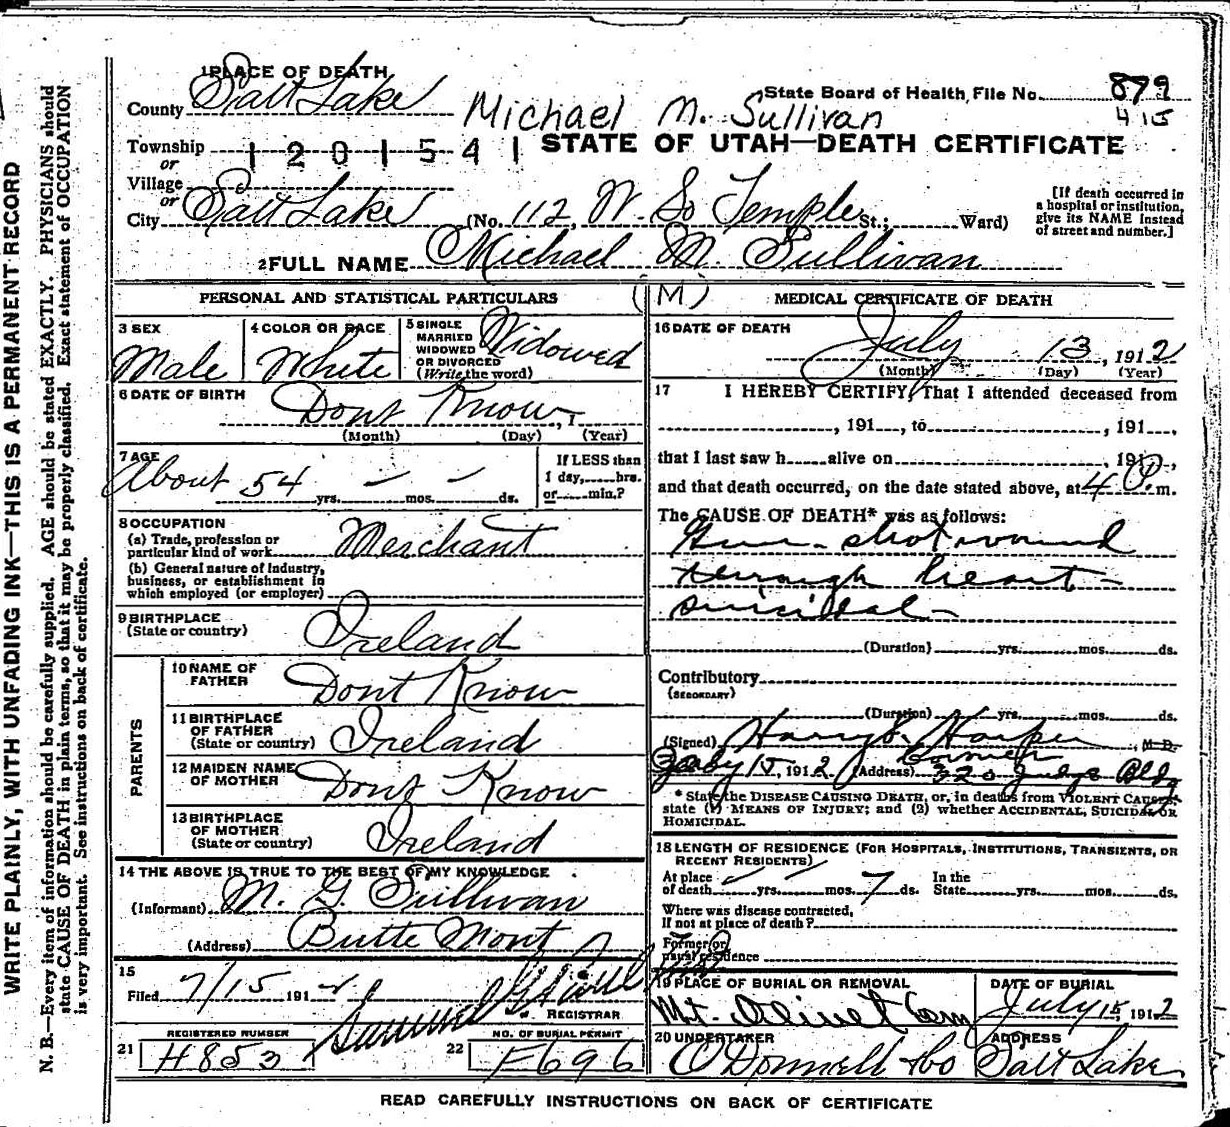 1 PLACE OF DEATH
County Salt Lake
State Board of Health, File No. 879
415
Michael M. Sullivan
Township 1201541
STATE OF UTAH—DEATH CERTIFICATE
or
Village
or
City Salt Lake (No. 112, W. So Temple St.; Ward)
[If death occurred in
a hospital or institution,
give its NAME instead
of street and number.]
2 FULL NAME Michael M. Sullivan
PERSONAL AND STATISTICAL PARTICULARS
(M)
3 SEX
Male
4 COLOR OR RACE
White
5 SINGLE
MARRIED
WIDOWED
OR DIVORCED
(Write the word)
Widowed
6 DATE OF BIRTH
Dont Know, 1
(Month) (Day) (Year)
7 AGE
About 54 yrs. — mos. — ds.
If LESS than
1 day, hrs.
or min.?
8 OCCUPATION
(a) Trade, profession or
particular kind of work Merchant
(b) General nature of industry,
business, or establishment in
which employed (or employer)
9 BIRTHPLACE
(State or country) Ireland
PARENTS
10 NAME OF
FATHER Dont Know
11 BIRTHPLACE
OF FATHER
(State or country) Ireland
12 MAIDEN NAME
OF MOTHER Dont Know
13 BIRTHPLACE
OF MOTHER
(State or country) Ireland
14 THE ABOVE IS TRUE TO THE BEST OF MY KNOWLEDGE
(Informant) M. G. Sullivan
(Address) Butte Mont
15
Filed 7/15 191 2
REGISTRAR
REGISTERED NUMBER
21 H853
NO. OF BURIAL PERMIT
22 F696
MEDICAL CERTIFICATE OF DEATH
16 DATE OF DEATH
July 13, 1912
(Month) (Day) (Year)
17 I HEREBY CERTIFY, That I attended deceased from
, 191 , to , 191 ,
that I last saw h alive on , 191 ,
and that death occurred, on the date stated above, at 4 P. m.
The CAUSE OF DEATH* was as follows:
Gun-shot wound
through heart—
suicidal—
(Duration) yrs. mos. ds.
Contributory
(SECONDARY)
(Duration) yrs. mos. ds.
(Signed) Harry S. Harper, M. D.
Coroner
July 15, 1912 (Address) 320 Judge Bldg
* State the DISEASE CAUSING DEATH, or, in deaths from VIOLENT CAUSES,
state (1) MEANS OF INJURY; and (2) whether ACCIDENTAL, SUICIDAL OR
HOMICIDAL.
18 LENGTH OF RESIDENCE (FOR HOSPITALS, INSTITUTIONS, TRANSIENTS, OR
RECENT RESIDENTS)
At place
of death — yrs. — mos. 7 ds.
In the
State yrs. mos. ds.
Where was disease contracted,
If not at place of death?
Former or
usual residence
19 PLACE OF BURIAL OR REMOVAL
Mt. Olivet Cem
DATE OF BURIAL
July 15 1912
20 UNDERTAKER
O'Donnell & Co
ADDRESS
Salt Lake
READ CAREFULLY INSTRUCTIONS ON BACK OF CERTIFICATE
WRITE PLAINLY, WITH UNFADING INK—THIS IS A PERMANENT RECORD
N. B.—Every item of information should be carefully supplied. AGE should be stated EXACTLY. PHYSICIANS should
state CAUSE OF DEATH in plain terms, so that it may be properly classified. Exact statement of OCCUPATION
is very important. See instructions on back of certificate.